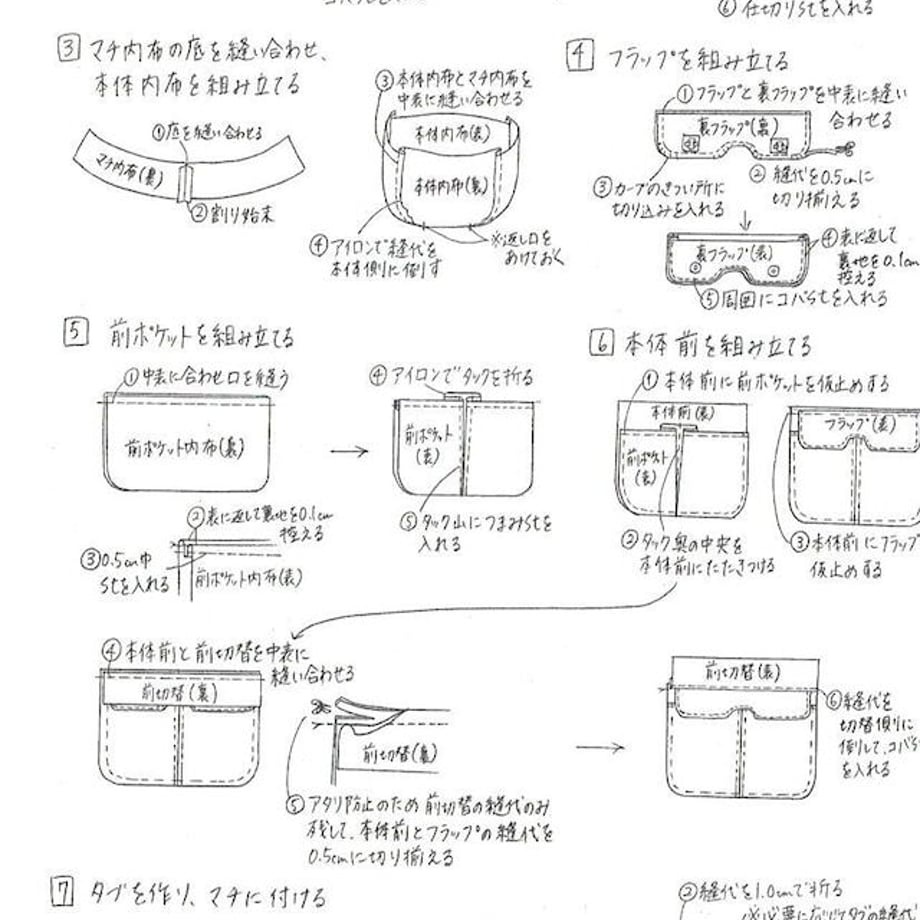 ⑥ 仕切りstを入れる
3 マチ内布の底を縫い合わせ、
本体内布を組み立てる
①底を縫い合わせる
マチ内布(裏)
②割り始末
③本体内布とマチ内布を
中表に縫い合わせる
本体内布(表)
本体内布(裏)
④アイロンで縫代を
本体側に倒す
※返し口を
あけておく
4 フラップを組み立てる
①フラップと裏フラップを中表に縫い
合わせる
裏フラップ(裏)
③カーブのきつい所に
切り込みを入れる
② 縫代を0.5cmに
切り揃える
裏フラップ(表)
④表に返して
裏地を0.1cm
控える
⑤周囲にコバstを入れる
5 前ポケットを組み立てる
①中表に合わせ口を縫う
前ポケット内布(裏)
②表に返して裏地を0.1cm
控える
③0.5cm巾
stを入れる
前ポケット内布(表)
④アイロンでタックを折る
前ポケット
(表)
⑤タック山につまみstを
入れる
6 本体前を組み立てる
①本体前に前ポケットを仮止めする
本体前(表)
前ポケット
(表)
②タック奥の中央を
本体前にたたきつける
フラップ(表)
③本体前にフラップ
仮止めする
④本体前と前切替を中表に
縫い合わせる
前切替(裏)
前切替(裏)
⑤アタリ防止のため前切替の縫代のみ
残して、本体前とフラップの縫代を
0.5cmに切り揃える
前切替(表)
⑥縫代を
切替側に
倒して、コバs
を入れる
7 タブを作り、マチに付ける
②縫代を1.0cmで折る